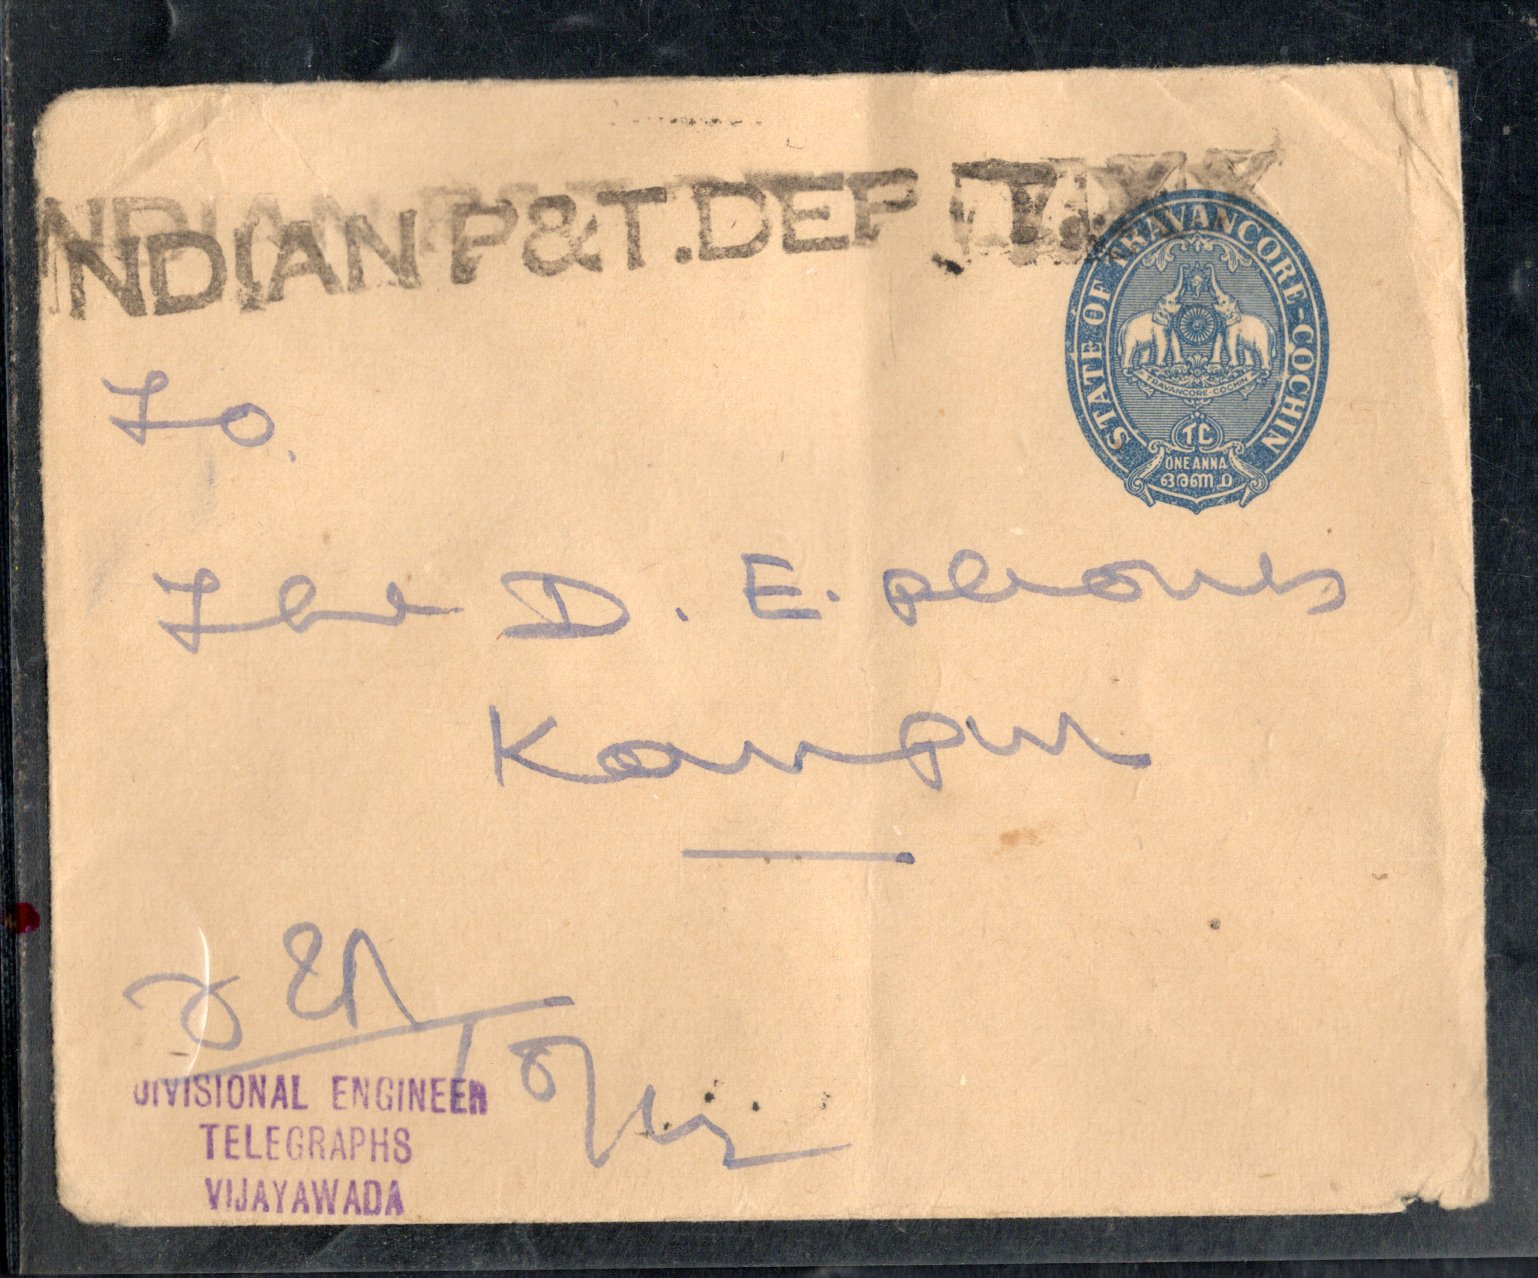 INDIAN P&T.DEP
STATE OF TRAVANCORE-COCHIN
TRAVANCORE-COCHIN
TC
ONE ANNA
ഒരണ
To,
The D. E. phones
Kanpur
DIVISIONAL ENGINEER
TELEGRAPHS
VIJAYAWADA